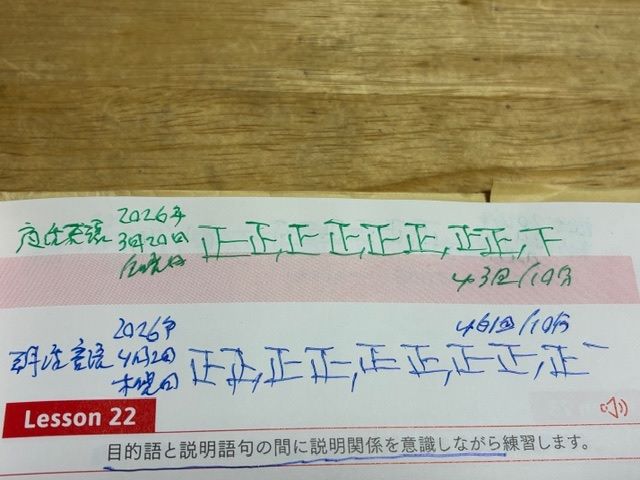 2026年
3月20日
金曜日
正正,正正正正,正正,下
43回/10分
2026年
46回/10分
4月2日
木曜日
正正,正正,正正,正正,正一
Lesson 22
目的語と説明語句の間に説明関係を意識しながら練習します。